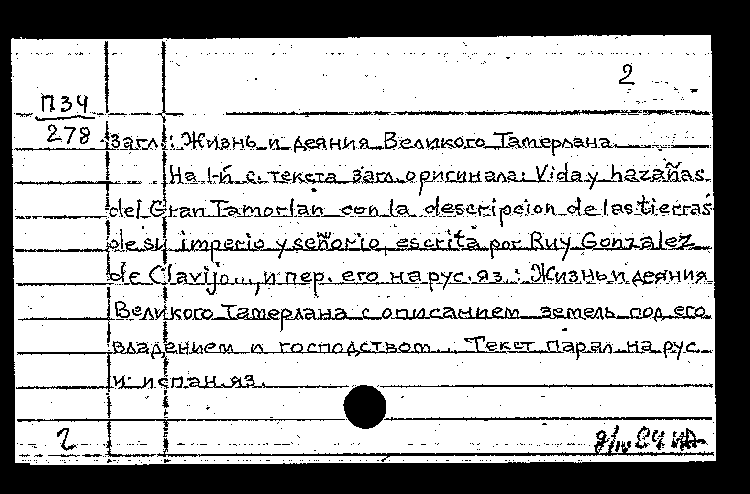 2
П34
278
Загл.: Жизнь и деяния Великого Тамерлана.
На 1-й с. текста загл. оригинала: Vida y hazañas
del Gran Tamorlan con la descripcion de las tierras
de su imperio y señorio, escrita por Ruy Gonzalez
de Clavijo..., и пер. его на рус. яз.: Жизнь и деяния
Великого Тамерлана с описанием земель под его
владением и господством... Текст парал. на рус.
и испан. яз.
2
84